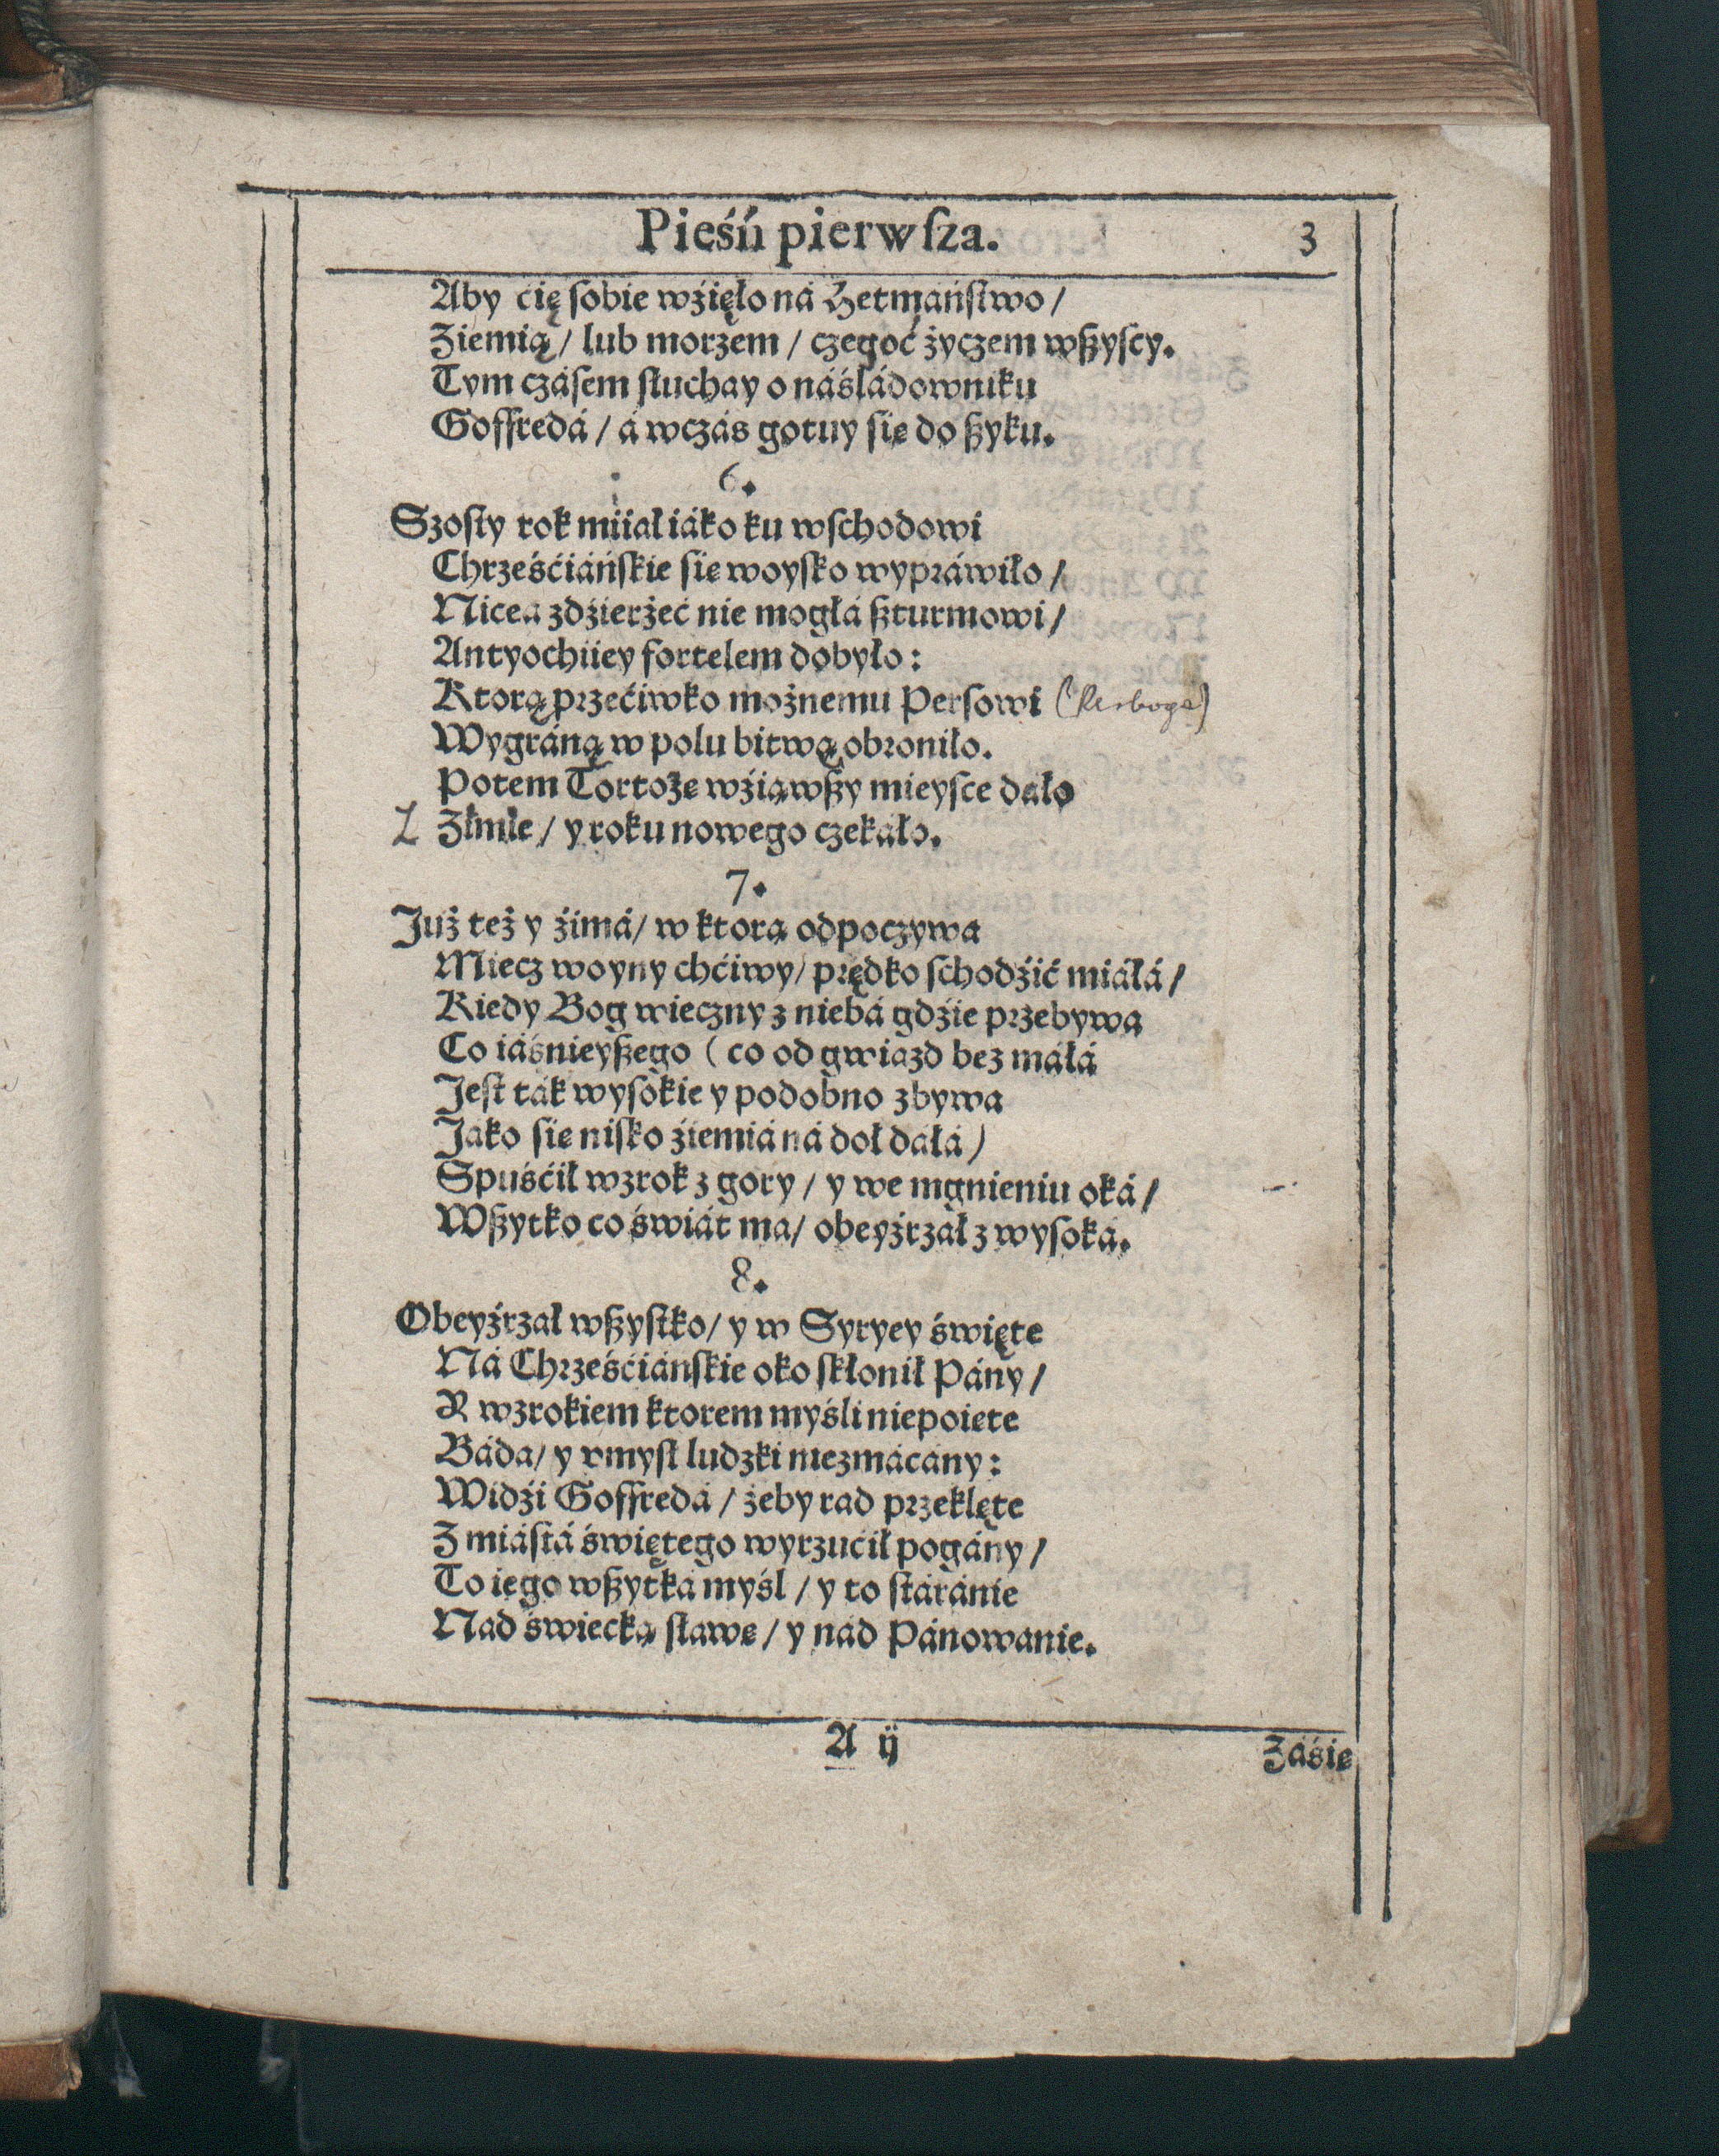 Pieśń pierwſza. 3
Aby cię ſobie wźięło ná Hetmáńſtwo /
Ziemią / lub morzem / czegoć życzem wſzyſcy.
Tym czáſem ſłuchay o náśládowniku
Goffredá / á wczás gotuy ſię do ſzyku.
6.
Szoſty rok miiał iáko ku wſchodowi
Chrześćiáńſkie ſię woyſko wypráwiło /
Nicea zdźierżeć nie mogłá ſzturmowi /
Antyochiiey fortelem dobyło:
Ktorą przećiwko możnemu Perſowi (Kerboga)
Wygráną w polu bitwą obroniło.
Potem Tortożę wźiąwſzy mieyſce dało
Z Zimie / y roku nowego czekáło.
7.
Już też y źimá / w ktorą odpoczywa
Miecz woyny chćiwy / prędko ſchodźić miáłá /
Kiedy Bog wieczny z niebá gdźie przebywa
Co iáśnieyſzego ( co od gwiazd bez máłá
Jeſt ták wyſokie y podobno zbywa
Jako ſię niſko źiemiá ná doł dáłá )
Spuśćił wzrok z gory / y we mgnieniu oká /
Wſzytko co świát ma / obeyźrzał z wyſoká.
8.
Obeyźrzał wſzyſtko / y w Syryey święte
Ná Chrześćiáńſkie oko ſkłonił Pány /
A wzrokiem ktorem myśli niepoięte
Báda / y vmyſł ludzki niezmácány:
Widźi Goffredá / żeby rad przeklęte
Z miáſtá świętego wyrzućił pogány /
To iego wſzytká myśl / y to ſtáránie
Nád świecką ſławę / y nád Pánowánie.
A ij
Záśię